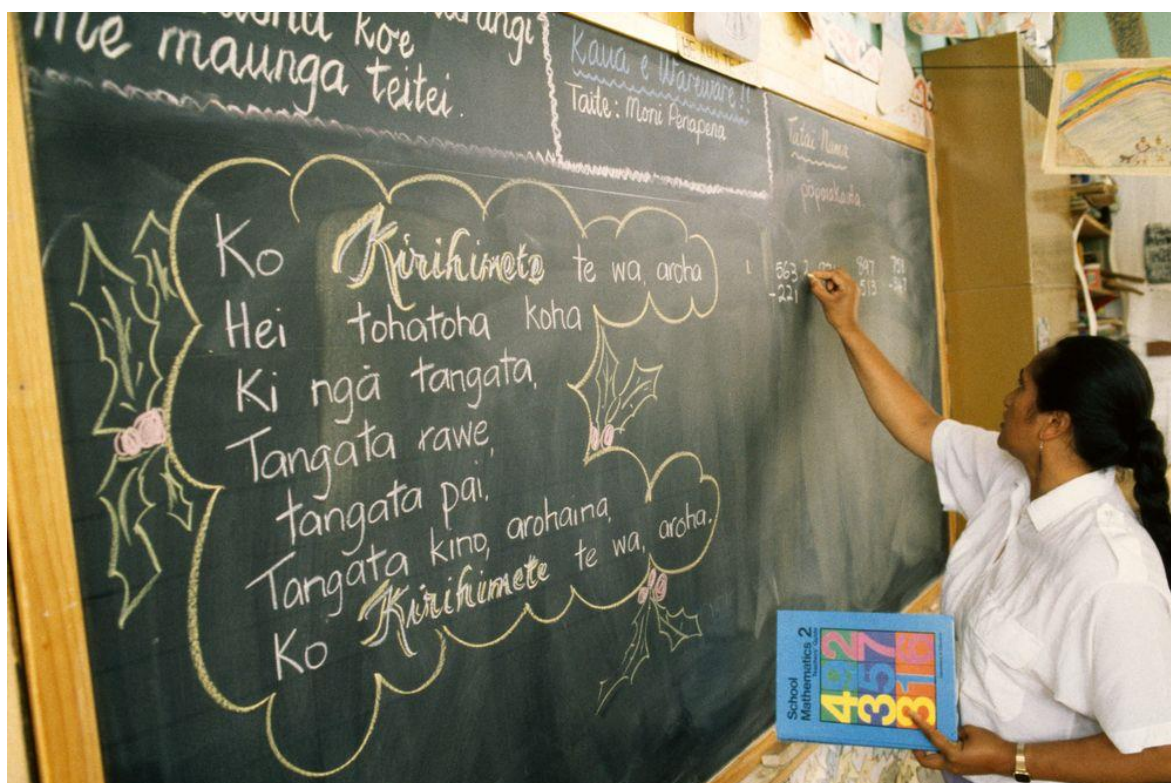 koe
me maunga teitei.
Kaua e Wareware!!
Taite: Moni Penapena
Ko Kirihimete te wa, aroha
Hei tohatoha koha
Ki ngā tangata,
Tangata rawe,
tangata pai,
Tangata kino, arohaina,
Ko Kirihimete te wa, aroha.
563
-221
School
Mathematics 2
492
357
816